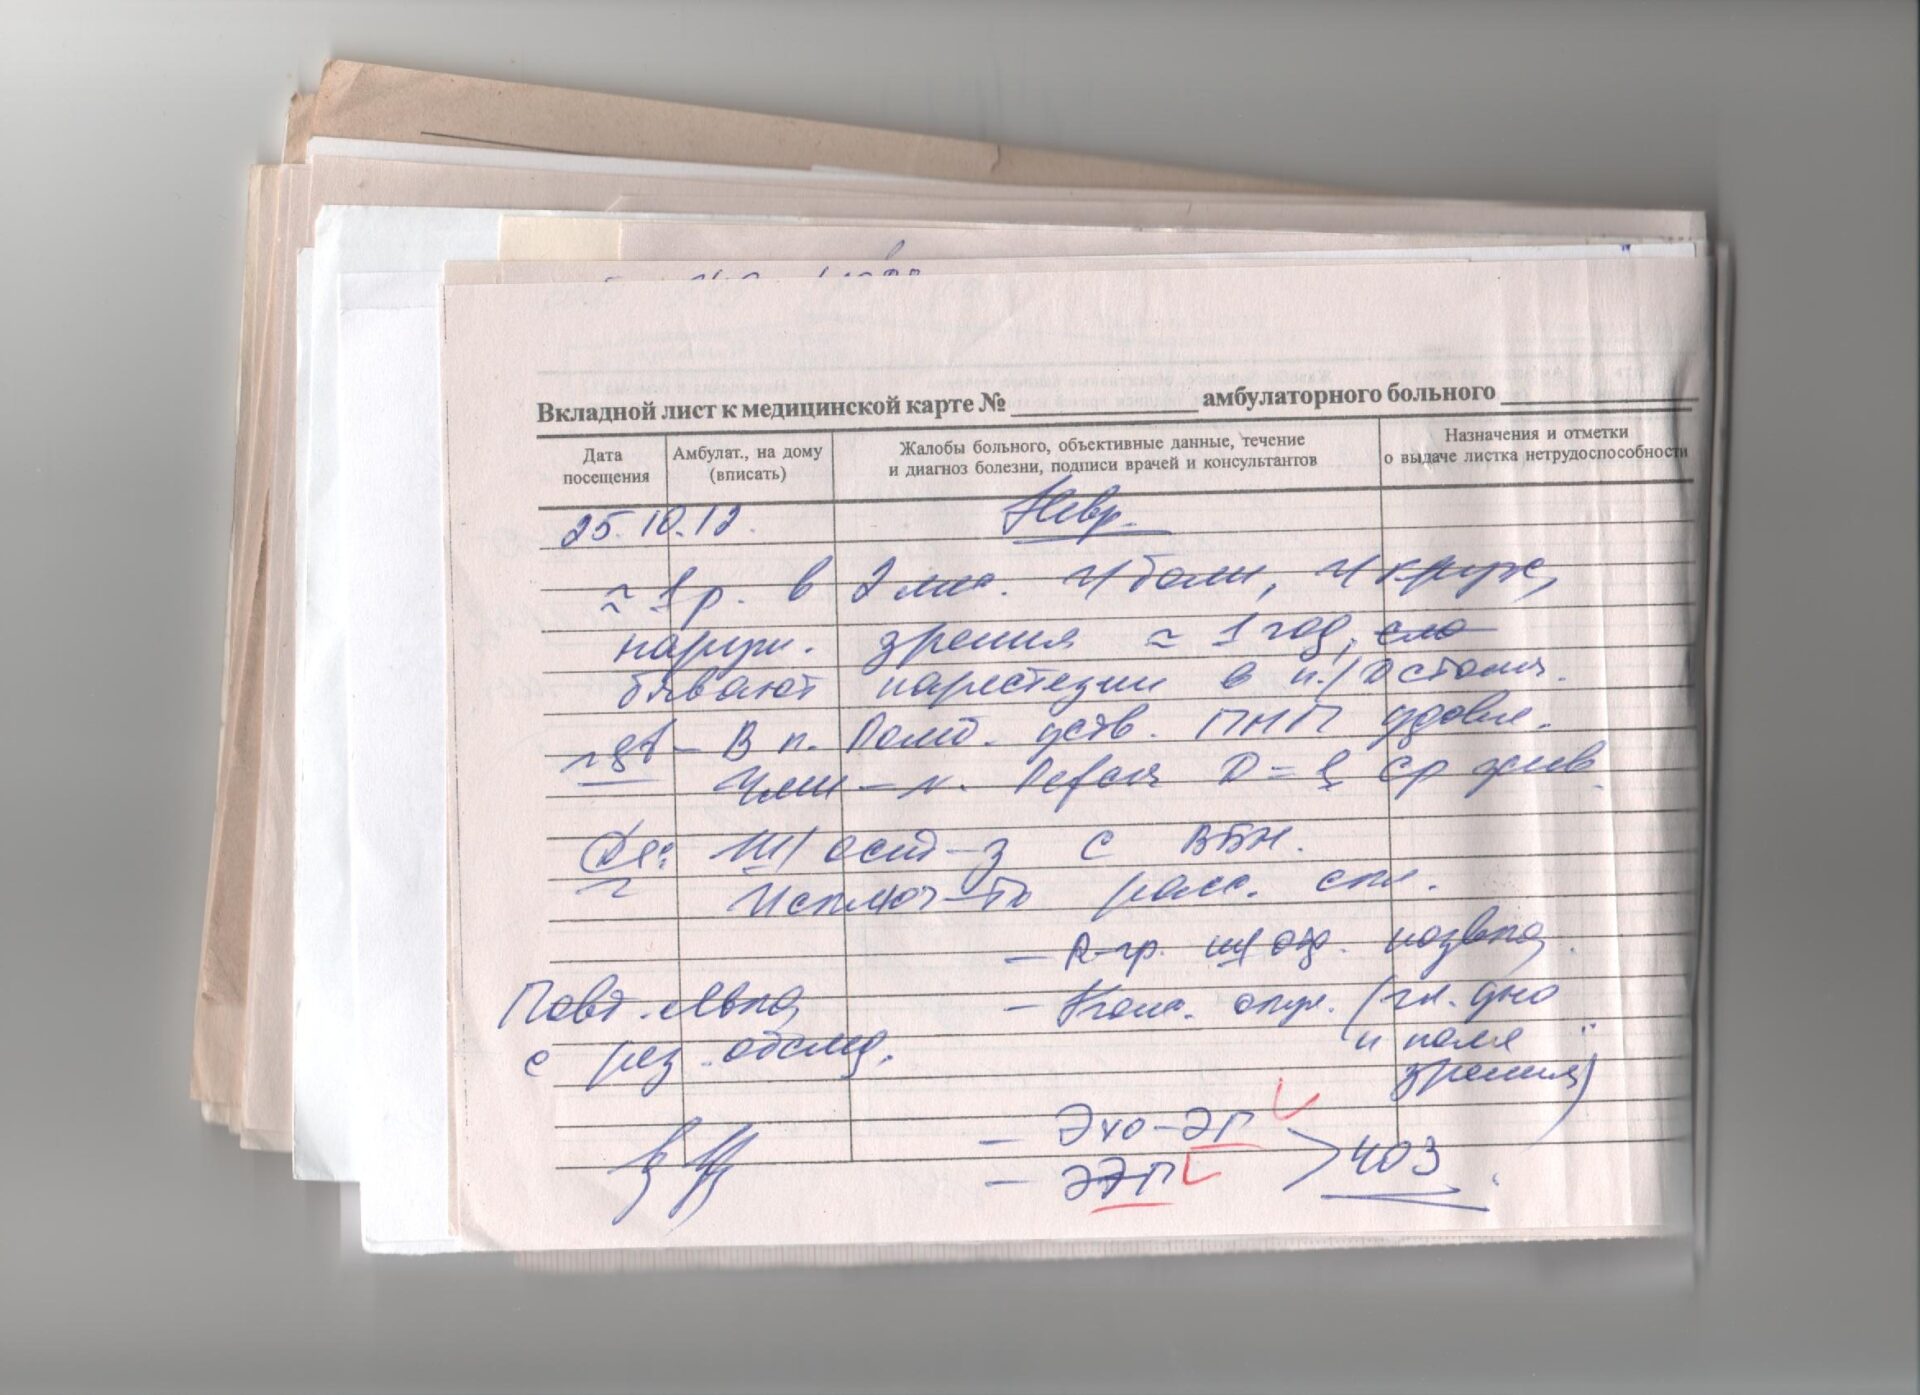 Вкладной лист к медицинской карте № амбулаторного больного
Дата посещения
Амбулат., на дому (вписать)
Жалобы больного, объективные данные, течение
и диагноз болезни, подписи врачей и консультантов
Назначения и отметки
о выдаче листка нетрудоспособности
25.10.12. Невр.
≈ 1 р. в 2 мес. г/боли, г/круж,
наруж. зрения ≈ 1 год,
бывают парестезии в п./
В п. Ромб. уст. ПНП удовл.
ЧМН – N. D = S ср жив.
Ds: Ш/ост-з с ВБН.
Исключ-ть расс. скл.
– R-гр. ш/отд. позвон.
Повт. явка – Конс. окул. (гл. дно
с рез. обслед. и поля
зрения)
– Эхо-ЭГ
– ЭЭГ > 403